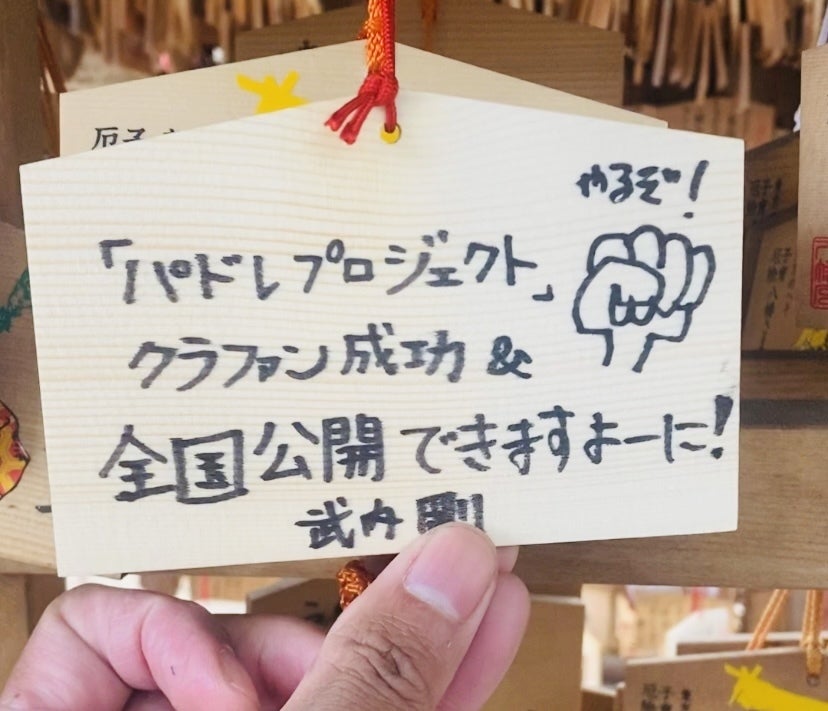 やるぞ!
「パドレプロジェクト」
クラファン成功&
全国公開できますよーに!
武内剛
厄子